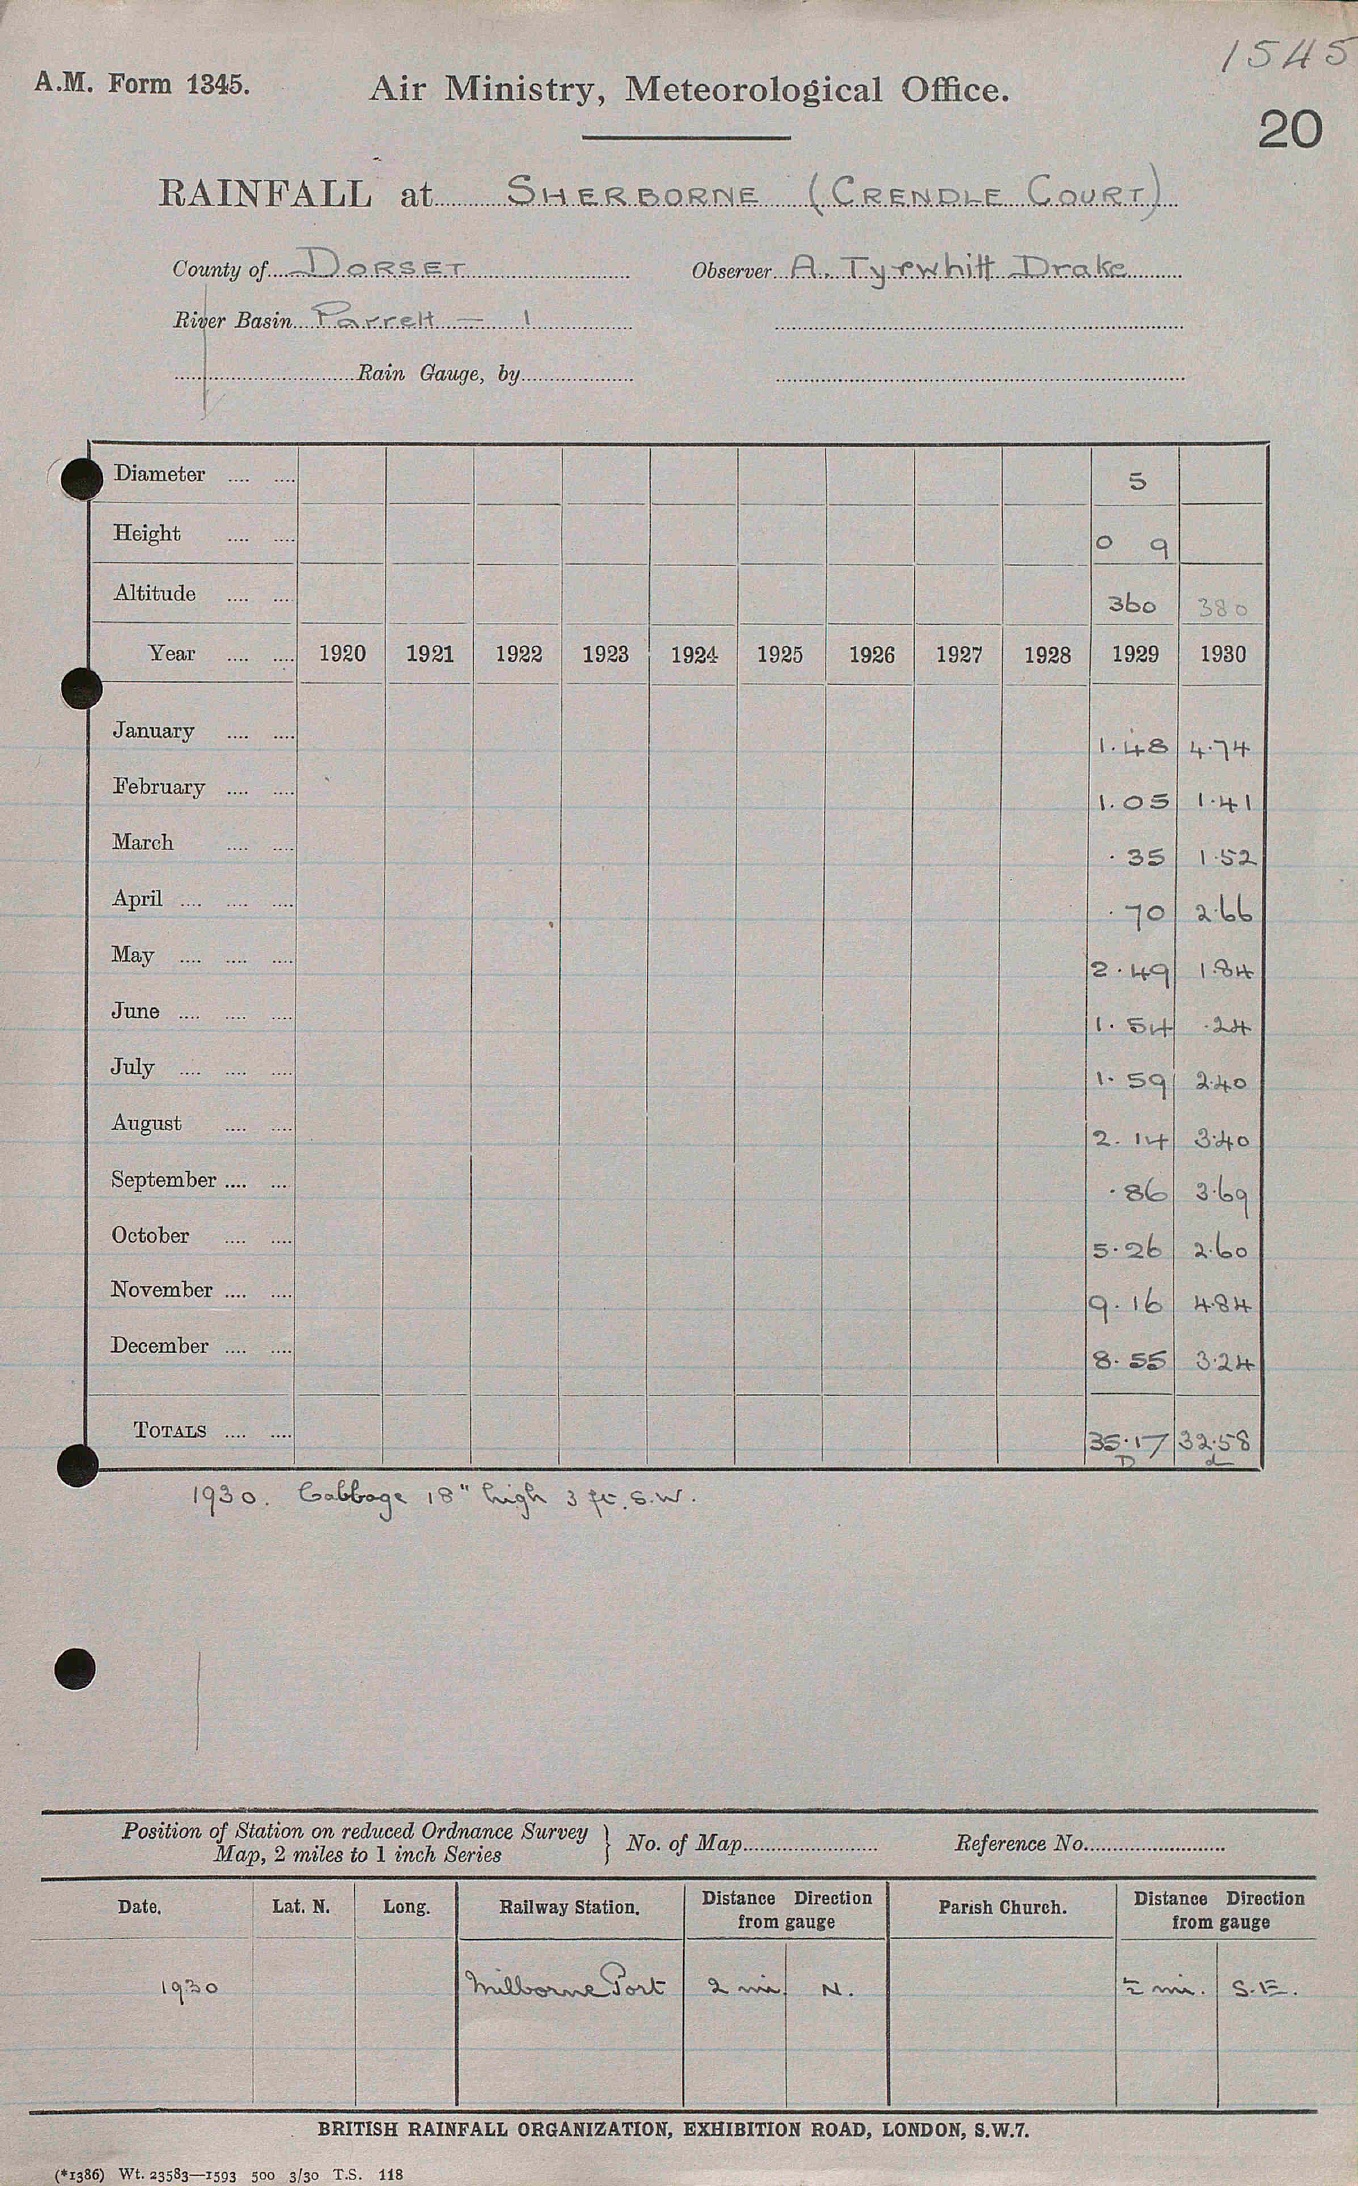 1545
A.M. Form 1345. Air Ministry, Meteorological Office.
20
RAINFALL at SHERBORNE (CRENDLE COURT)
County of DORSET Observer A. Tyrwhitt Drake
River Basin Parrett — 1
Rain Gauge, by
Diameter 5
Height 0 9
Altitude 360 380
Year 1920 1921 1922 1923 1924 1925 1926 1927 1928 1929 1930
January 1.48 4.74
February 1.05 1.41
March .35 1.52
April .70 2.66
May 2.49 1.84
June 1.54 .24
July 1.59 2.40
August 2.14 3.40
September .86 3.69
October 5.26 2.60
November 9.16 4.84
December 8.55 3.24
TOTALS 35.17 32.58
D d
1930. Cabbage 18" high 3 ft. S.W.
Position of Station on reduced Ordnance Survey
Map, 2 miles to 1 inch Series } No. of Map Reference No.
Date. Lat. N. Long. Railway Station. Distance from gauge Direction Parish Church. Distance from gauge Direction
1930 Milborne Port 2 mi. N. ½ mi. S.E.
BRITISH RAINFALL ORGANIZATION, EXHIBITION ROAD, LONDON, S.W.7.
(*1386) Wt. 23583—1593 500 3/30 T.S. 118